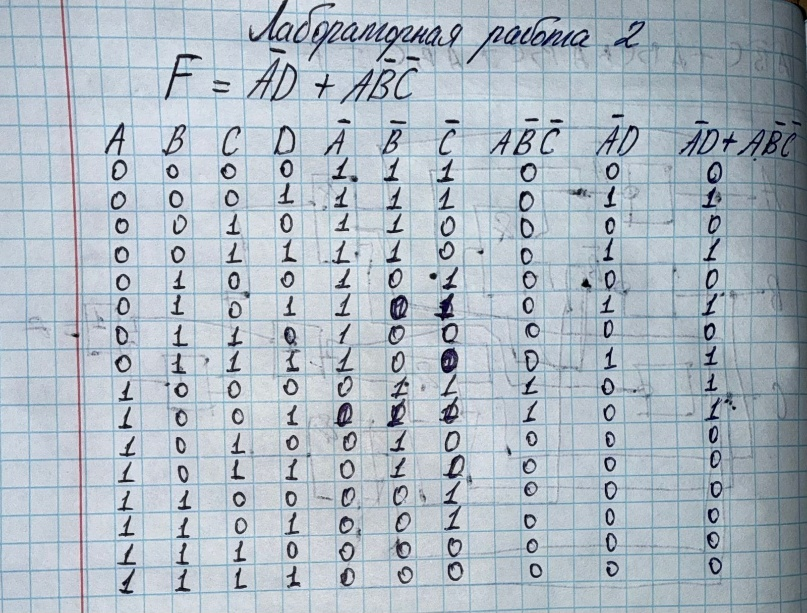 Лабораторная работа 2
F = A̅D + AB̅C̅
A B C D A̅ B̅ C̅ AB̅C̅ A̅D A̅D + AB̅C̅
0 0 0 0 1 1 1 0 0 0
0 0 0 1 1 1 1 0 1 1
0 0 1 0 1 1 0 0 0 0
0 0 1 1 1 1 0 0 1 1
0 1 0 0 1 0 1 0 0 0
0 1 0 1 1 0 1 0 1 1
0 1 1 0 1 0 0 0 0 0
0 1 1 1 1 0 0 0 1 1
1 0 0 0 0 1 1 1 0 1
1 0 0 1 0 1 1 1 0 1
1 0 1 0 0 1 0 0 0 0
1 0 1 1 0 1 0 0 0 0
1 1 0 0 0 0 1 0 0 0
1 1 0 1 0 0 1 0 0 0
1 1 1 0 0 0 0 0 0 0
1 1 1 1 0 0 0 0 0 0